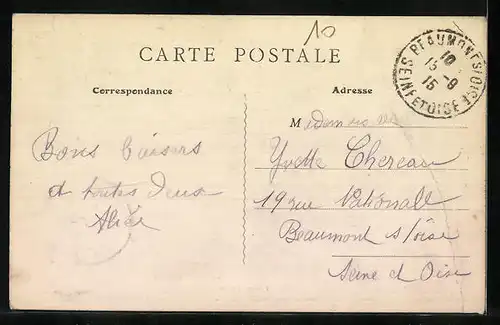 10
CARTE POSTALE
Correspondance
Adresse
BEAUMONT S/OISE
10
15 -8
15
SEINE ET OISE
Bons baisers
à toutes deux
Alice
Mademoiselle
Yvette Chereau
19 rue Nationall
Beaumont s/oise
Seine et Oise